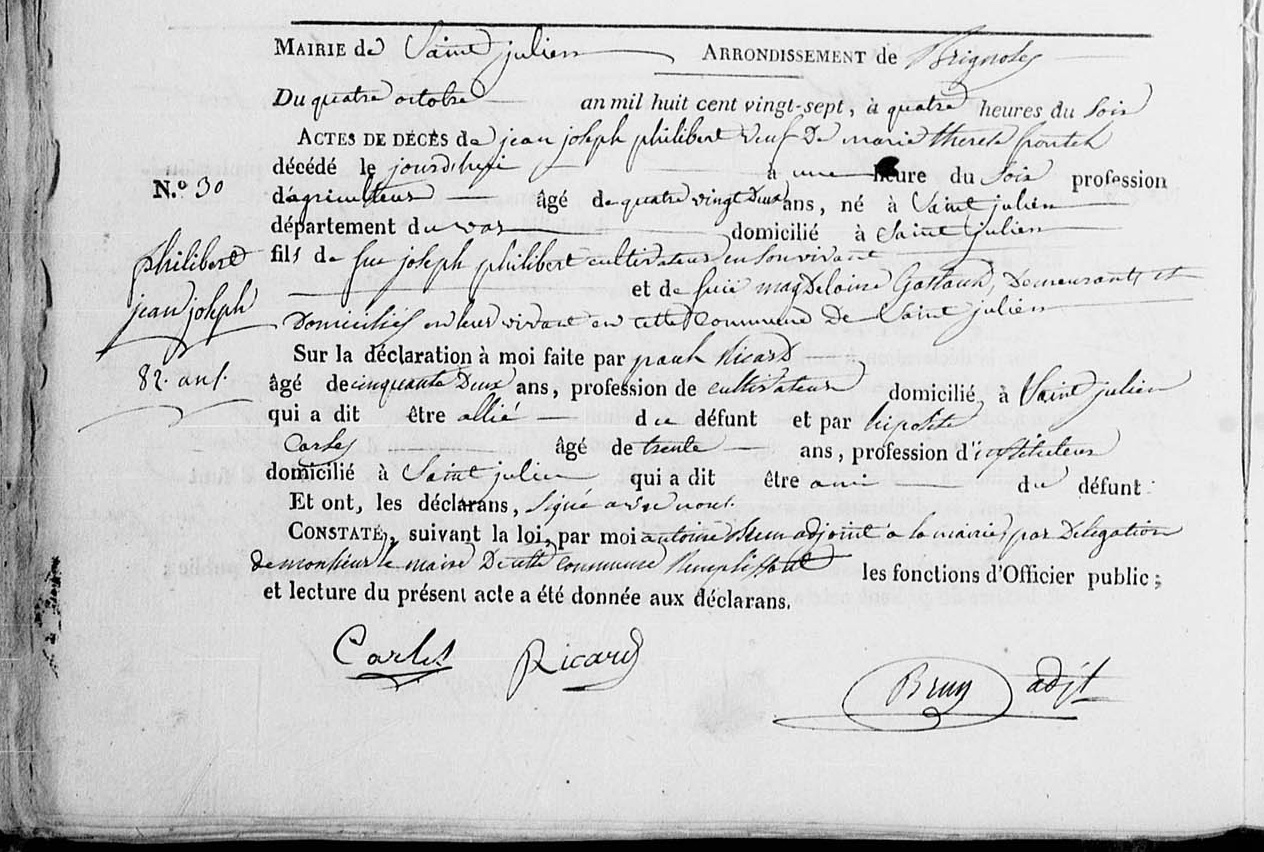 MAIRIE de Saint julien ARRONDISSEMENT de Brignoles
Du quatre octobre an mil huit cent vingt-sept, à quatre heures du Soir
ACTES DE DÉCÈS de jean joseph philibert veuf De marie therese
décédé le jourd'huy à une heure du Soir profession
N.º 30
d'agriculteur âgé de quatre vingt Deux ans, né à Saint julien
département du var domicilié à Saint julien
philibert
jean joseph
82. ans.
fils de feu joseph philibert cultivateur en Son vivant
et de feue magdelaine Demeurants et
Domiciliés en leur vivant en cette Commune De Saint julien
Sur la déclaration à moi faite par paul Ricard
âgé de cinquante Deux ans, profession de cultivateur domicilié, à Saint julien
qui a dit être allié du défunt et par hiposite
Carles âgé de trente ans, profession d'instituteur
domicilié à Saint julien qui a dit être ami du défunt
Et ont, les déclarans, Signé avec nous.
CONSTATÉ, suivant la loi, par moi antoine Brun adjoint a la mairie, par Délégation
de monsieur le maire De cette commune Remplissant les fonctions d'Officier public;
et lecture du présent acte a été donnée aux déclarans.
Carles Ricard
Brun adjt